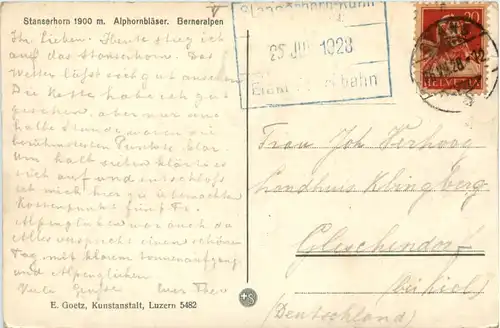 Stanserhorn 1900 m. Alphornbläser. Berneralpen
Ihr Lieben. Heute stieg ich
auf das Stanserhorn. Das
Wetter lässt sich gut ansehen
Die Kette habe ich gut
gesehen, aber nur eine
halbe Stunde waren die
berühmtesten Punkte klar.
Um halb sieben klärte es
sich auf und entschloss
ich mich hier zu übernachten
Kostenpunkt fünf Fr.
Alpenglühen war auch da
Alles verspricht einen schönen
Tag mit klarem Sonnenaufgang
und Alpenglühen
Viele Grüsse Euer Theo
E. Goetz, Kunstanstalt, Luzern 5482
Stanserhorn-Bahn
25 JUL 1928
bahn
20
HELVETIA
Frau Joh. Verhoog
Landhuis Klingberg
Gleschendorf
bei Kiel
(Deutschland)